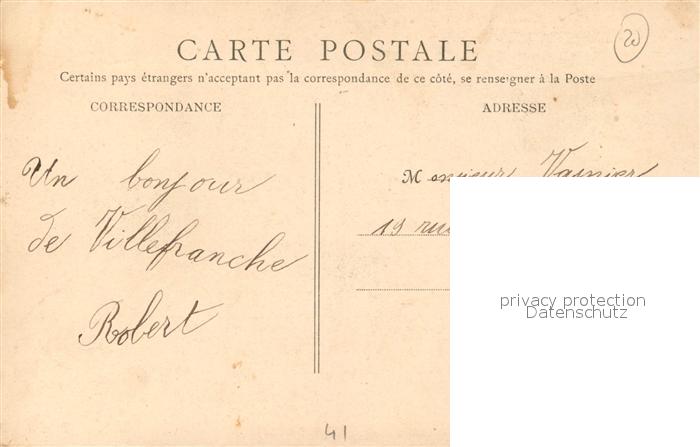 20
CARTE POSTALE
Certains pays étrangers n'acceptant pas la correspondance de ce côté, se renseigner à la Poste
CORRESPONDANCE
ADRESSE
Un bonjour
de Villefranche
Robert
Monsieur
19 rue
privacy protection
Datenschutz
41